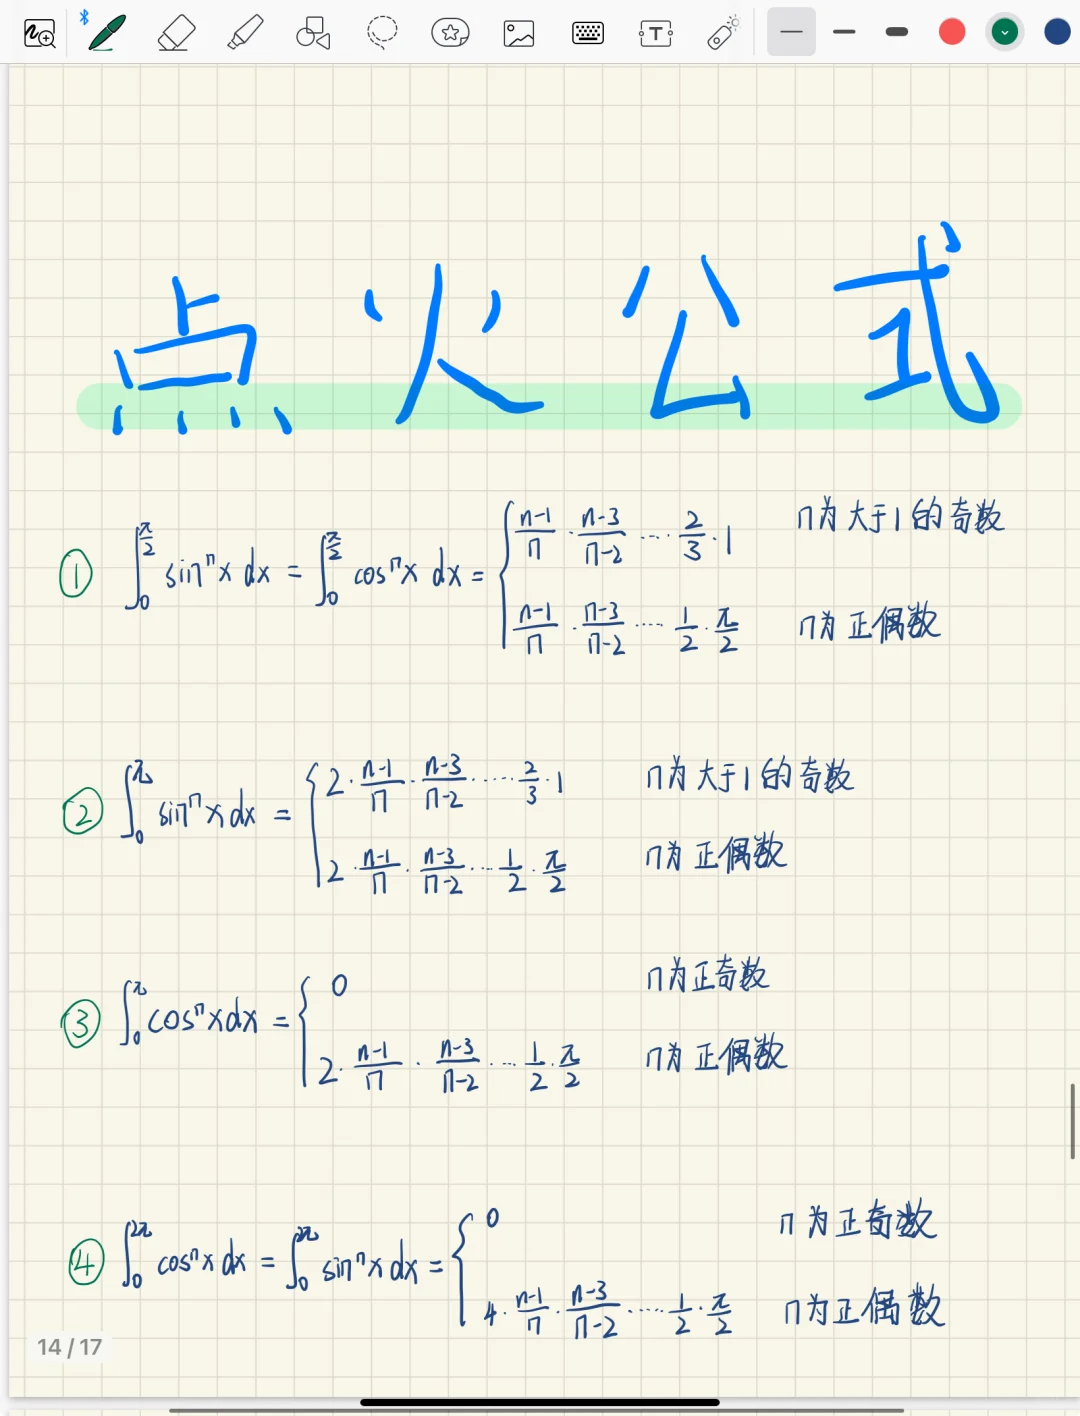 点火公式
① ∫₀^{π/2} sinⁿx dx = ∫₀^{π/2} cosⁿx dx = { (n-1)/n · (n-3)/(n-2) ··· 2/3 · 1 n为大于1的奇数
(n-1)/n · (n-3)/(n-2) ··· 1/2 · π/2 n为正偶数
② ∫₀^π sinⁿx dx = { 2 · (n-1)/n · (n-3)/(n-2) ····· 2/3 · 1 n为大于1的奇数
2 · (n-1)/n · (n-3)/(n-2) ··· 1/2 · π/2 n为正偶数
③ ∫₀^π cosⁿx dx = { 0 n为正奇数
2 · (n-1)/n · (n-3)/(n-2) ··· 1/2 · π/2 n为正偶数
④ ∫₀^{2π} cosⁿx dx = ∫₀^{2π} sinⁿx dx = { 0 n为正奇数
4 · (n-1)/n · (n-3)/(n-2) ···· 1/2 · π/2 n为正偶数
14 / 17